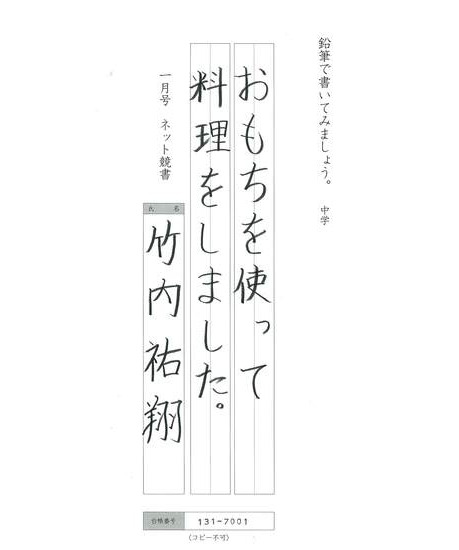 鉛筆で書いてみましょう。 中学
おもちを使って
料理をしました。
一月号 ネット競書
氏名
竹内祐翔
合格番号 131-7001
(コピー不可)